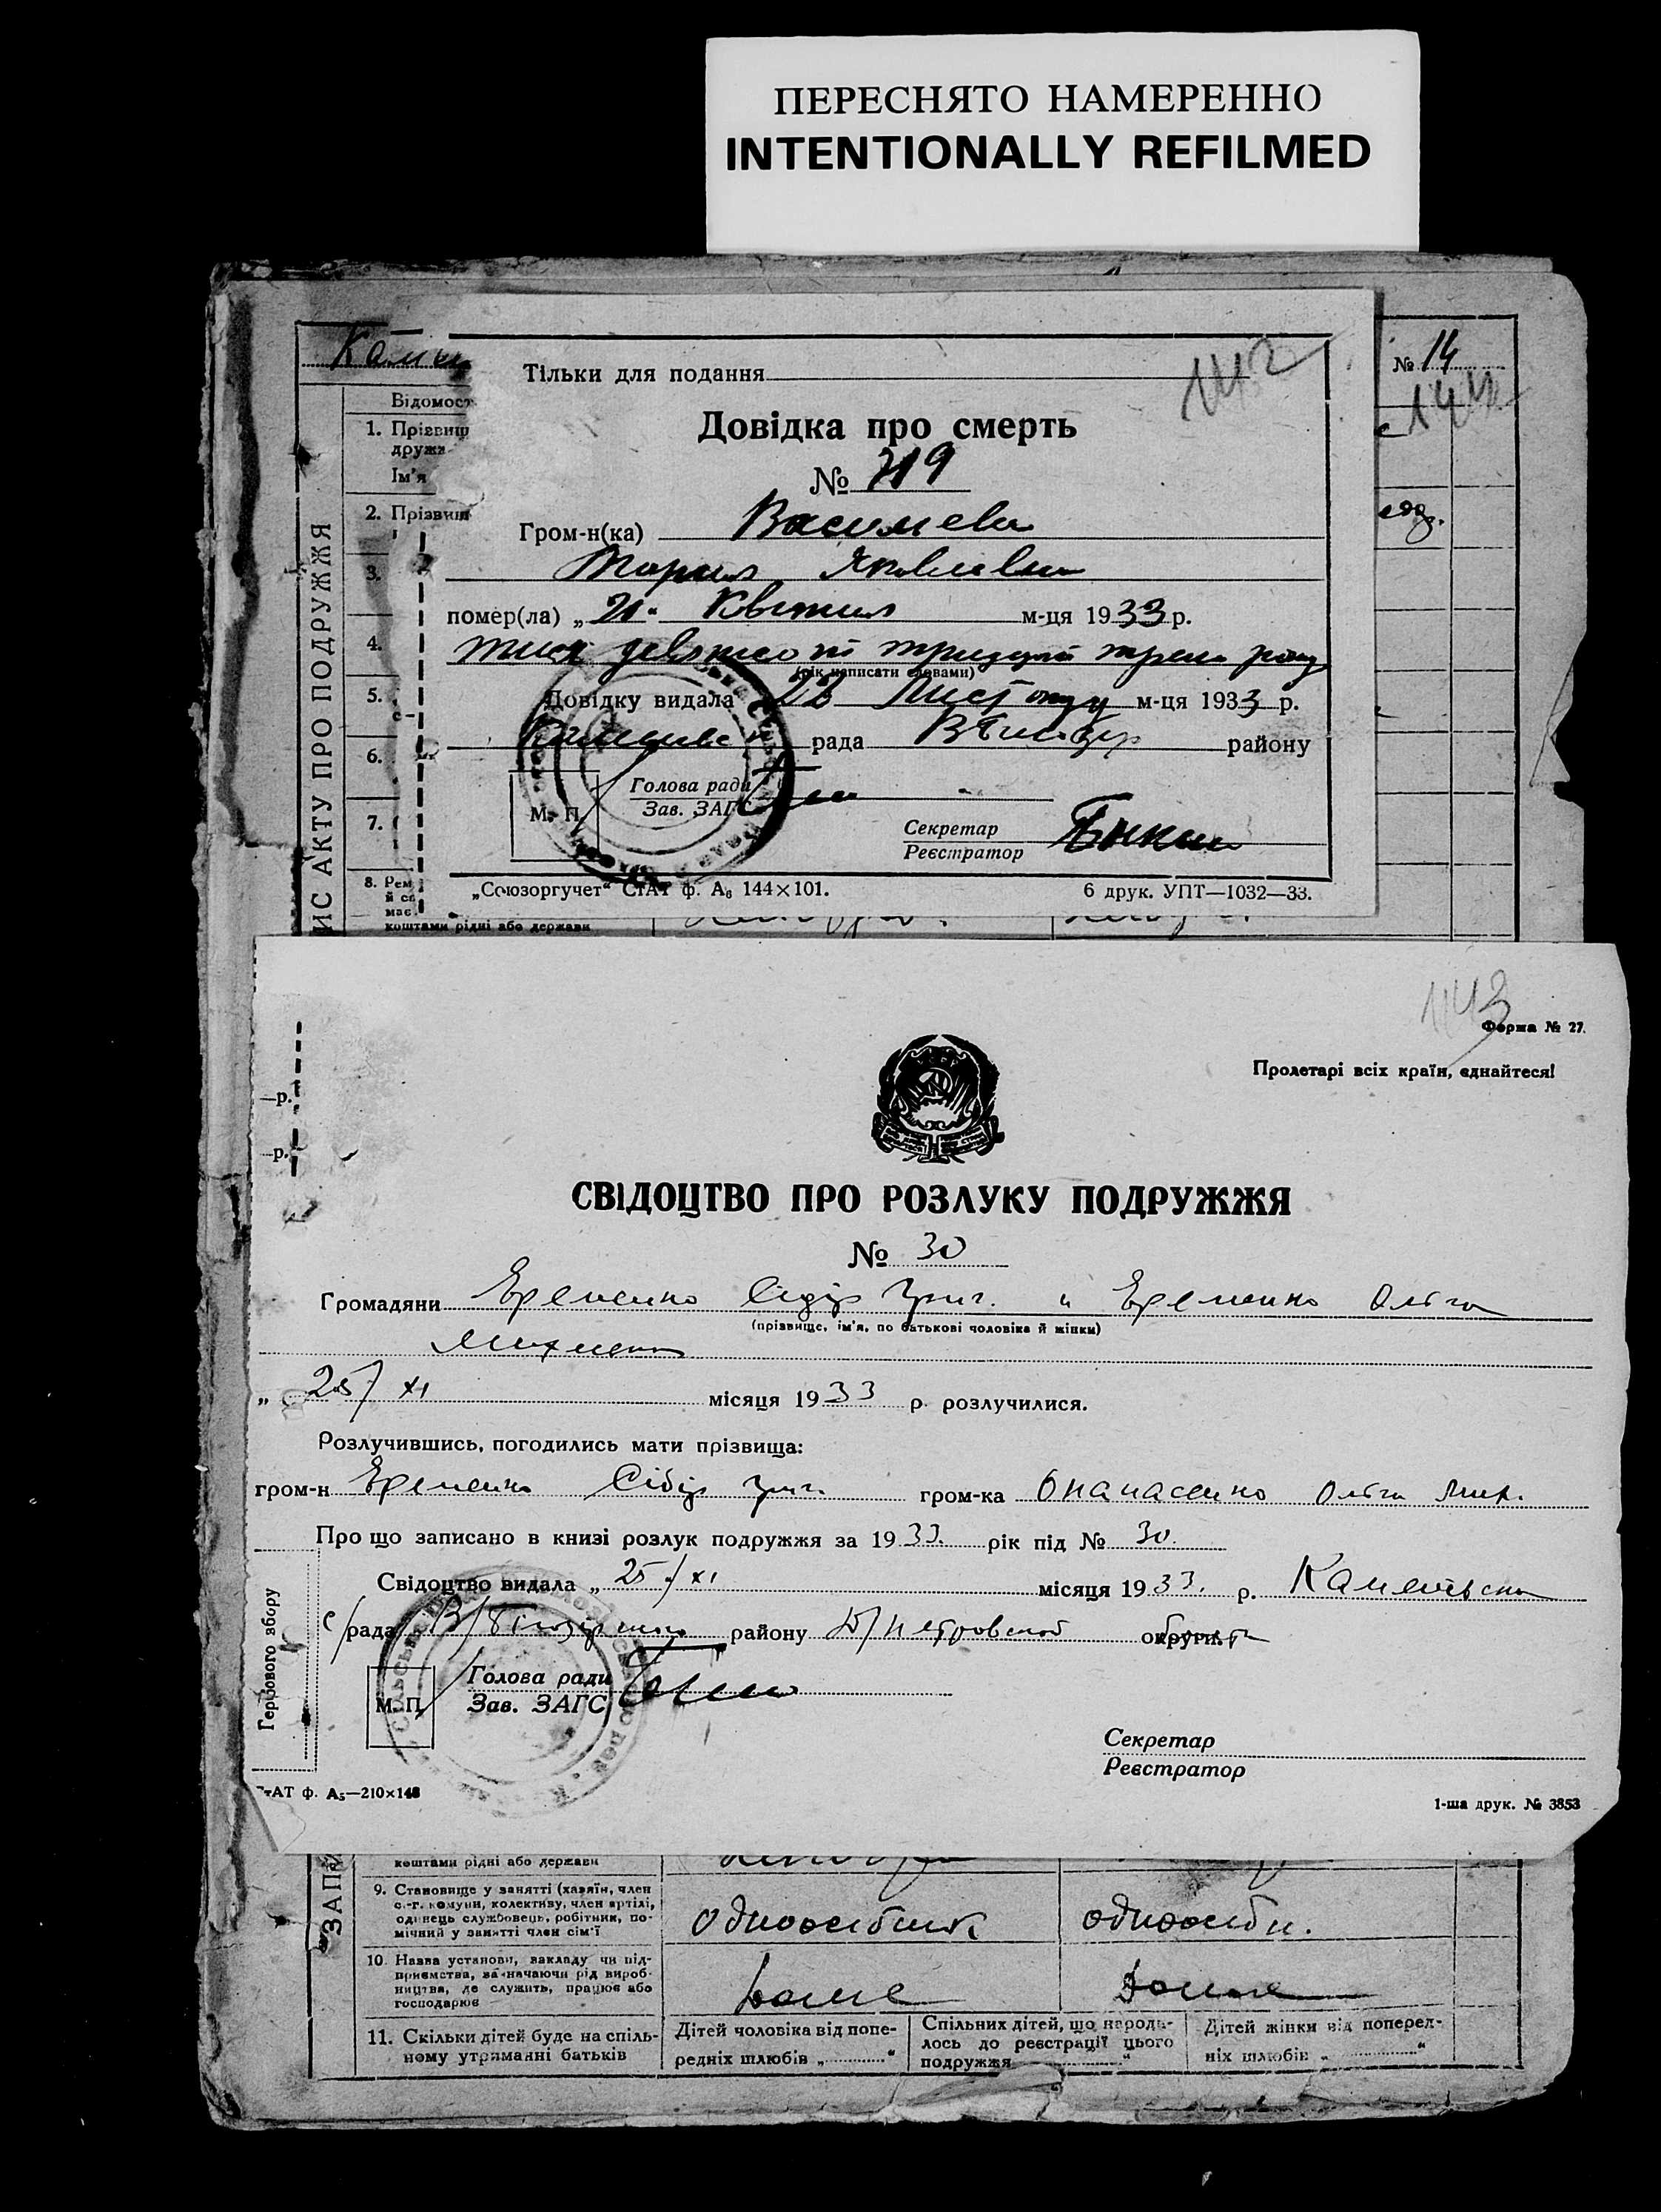 ПЕРЕСНЯТО НАМЕРЕННО
INTENTIONALLY REFILMED
№ 14
144
Відомост
1. Прізвищ
друж
Ім'я
2. Прізвищ
3.
4.
5.
6.
7.
8. Рем
має
коштами рідні або держави
142
Тільки для подання
Довідка про смерть
№ 719
Гром-н(ка)
Яковлевна
помер(ла) „21“ Квітня м-ця 1933 р.
тися девятсот тридцяті року
(рік написати словами)
Довідку видала Листопаду м-ця 1933 р.
рада району
Голова ради
Зав. ЗАГС
М. П.
Секретар
Реєстратор
„Союзоргучет“ СтАТ ф. А₆ 144×101.
6 друк. УПТ—1032—33.
143
Форма № 27.
Пролетарі всіх країн, єднайтеся!
—р.
—р.
СВІДОЦТВО ПРО РОЗЛУКУ ПОДРУЖЖЯ
№ 30
Громадяни Еременко Сидір Григ. и Еременко Ольга
(прізвище, ім'я, по батькові чоловіка й жінки)
„ 25/XI місяця 1933 р. розлучилися.
Розлучившись, погодились мати прізвища:
гром-н Еременко Сідір Григ. гром-ка Опанасенко Ольга Мих.
Про що записано в книзі розлук подружжя за 1933. рік під № 30.
Свідоцтво видала „ 25/XI місяця 1933. р.
с/рада району Д/петровской округи
Голова ради
Зав. ЗАГС
М. П.
Гербового збору
Секретар
Реєстратор
СтАТ ф. А₅—210×148
1-ша друк. № 3853
коштами рідні або держави
9. Становище у занятті (хазяїн, член
с.-г. комуни, колективу, член артілі,
одинець службовець, робітник, по-
мічний у занятті член сім'ї
одноосібник
одноосібн.
10. Назва установи, закладу чи під-
приємства, зазначаючи рід вироб-
ництва, де служить, працює або
господарює
Доме
Доме
11. Скільки дітей буде на спіль-
ному утриманні батьків
Дітей чоловіка від попе-
редніх шлюбів „ “
Спільних дітей, що народи-
лось до реєстрації цього
подружжя “
Дітей жінки від поперед-
ніх шлюбів „ “
ЗАПИС АКТУ ПРО ПОДРУЖЖЯ